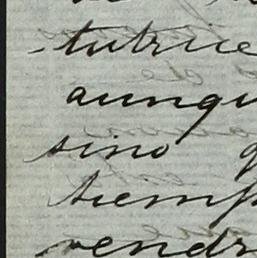 -tutrice
aunqu
sino q
tiemp
vendr